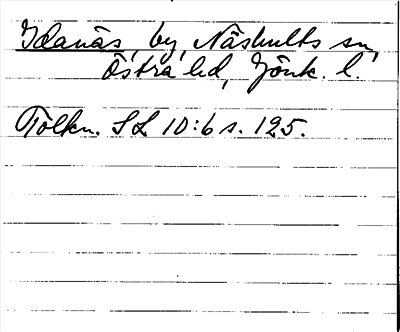 Idanäs, by, Näshults sn,
Östra hd, Jönk. l.
Tolkn. SL 10:6 s. 125.